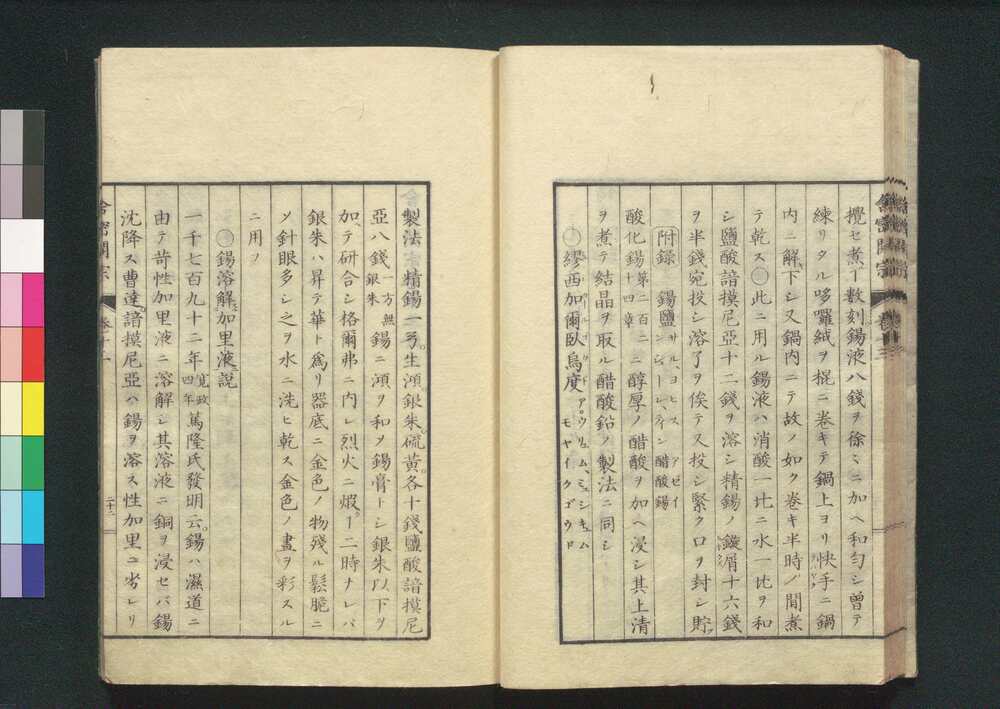 攪セ煮ー數刻錫液八錢ヲ徐々ニ加ヘ和勻シ曽テ
練リタル哆囉絨ヲ棍ニ巻キテ鍋上ヨリ快手ニ鍋
内ニ解下シ又鍋内ニテ故ノ如ク巻キ半時ノ間煮
テ乾ス 此ニ用ル錫液ハ消酸一比ニ水一比ヲ和
シ鹽酸諳摸尼亞十二錢ヲ溶シ精錫ノ鎈屑十六錢
ヲ半錢宛投シ溶了ヲ俟テス投シ緊ク口ヲ封シ貯
附録 錫鹽 サル、ヨヒス アセイ 醋酸錫
酸化錫 第二百二十四章 ニ醇厚ノ醋酸ヲ加ヘ浸シ其上清
ヲ煮テ結晶ヲ取ル醋酸鉛ノ製法ニ同シ
繆西加爾臥烏度 アウリュム、ミュシキュム モヤイクゴウウド
舍密開宗 巻十三
製法 精錫一弓生澒銀朱硫黄各十錢鹽酸諳摸尼
亞八錢 一方無銀朱 錫ニ澒ヲ和ヲ錫膏トシ銀朱以下ヲ
加ヘテ研合シ格爾弗ニ内レ烈火ニ煆ー二時ナレバ
銀朱ハ昇テ華ト為リ器底ニ金色ノ物殘ル鬆脆ニ
ソ針眼多シ之ヲ水ニ洗ヒ乾ス金色ノ畫ヲ彩スル
ニ用ソ
錫溶解加里液說
一千七百九十二年 寛政四年 篤隆氏發明云錫ハ濕道ニ
由テ苛性加里液ニ溶解シ其溶液ニ銅ヲ浸セバ錫
沈降ス曹達諳摸尼亞ハ錫ヲ溶ス性加里ニ劣レリ